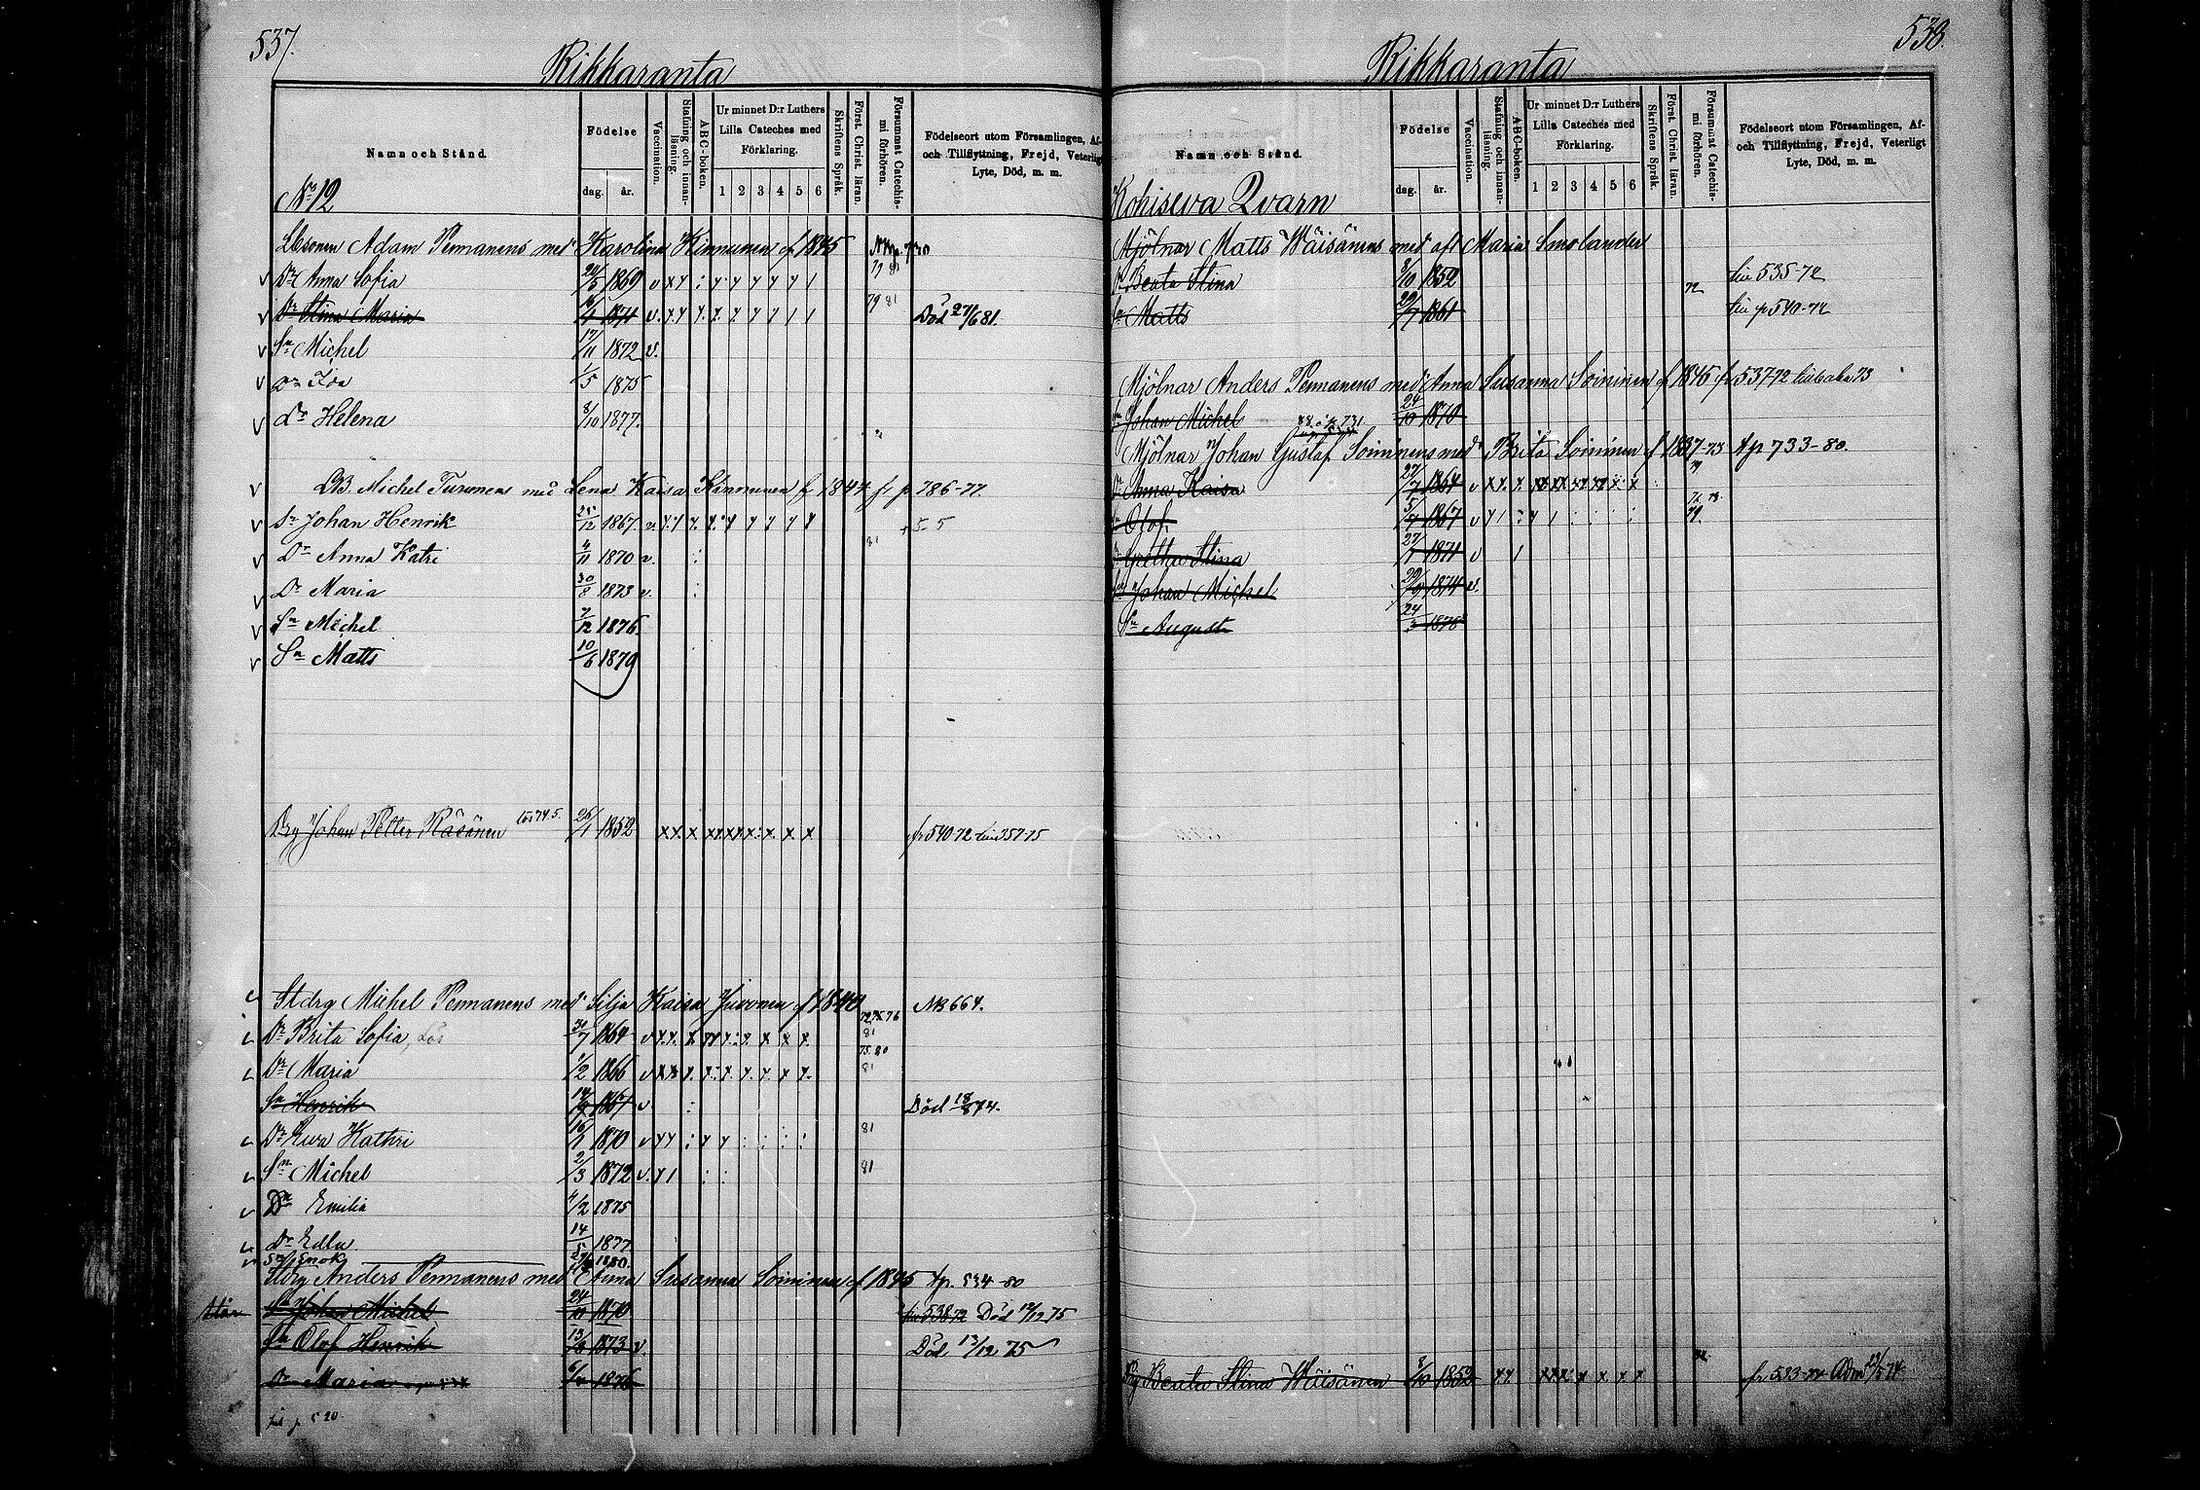 537.
Rikkaranta
Namn och Stånd.
Födelse
dag. år.
Vaccination.
Stafning och innanläsning.
ABC-boken.
Ur minnet D:r Luthers Lilla Cateches med Förklaring.
1 2 3 4 5 6
Skriftens Språk.
Först. Christ. läran.
Försummat Catechismi förhören.
Födelseort utom Församlingen, Af- och Tillflyttning, Frejd, Veterligt Lyte, Död, m. m.
No 12
Adam Pennanens med Karolina Kinnunen f 1845
Dr Anna Sofia 24/5 1869 v
Dr Stina Maria 1871 v. 79 81 Död 27/6 81.
Sn Michel 17/11 1872 v.
Dr Ida 1/5 1875
Dr Helena 8/10 1877.
Michel Turunens med Lena Kaisa Kinnunen f 1844 fr p 786-77.
Sn Johan Henrik 25/12 1867 v.
Dr Anna Katri 4/11 1870 v.
Dr Maria 30/8 1873 v.
Sn Michel 7/12 1876
Sn Matts 10/6 1879
Drg Johan Petter Räsänen 26/1 1852 fr 540-72 till 357-75
Stdrg Michel Pennanens med Silja Kaisa Juvonen f 1840 NB 664.
Dr Brita Sofia, 31/7 1864 v 81
Dr Maria 1/2 1866 v 81
Sn Henrik 1867 v Död 18/8 74.
Dr Ewa Kathri 16/1 1870 v 81
Sn Michel 2/3 1872 v. 81
Dr Emilia 4/2 1875
Dr Edla 14/5 1877
Sn Enok 1880.
Stdrg Anders Pennanens med Anna Susanna Soininen f 1845 fp. 534-80
Sn Johan Michel 24/10 1870 till 538 72 Död 12/12 75
Sn Olof Henrik 1873 v. Död 13/12 75
Dr Maria 1876
538.
Rikkaranta
Namn och Stånd.
Födelse
dag. år.
Vaccination.
Stafning och innanläsning.
ABC-boken.
Ur minnet D:r Luthers Lilla Cateches med Förklaring.
1 2 3 4 5 6
Skriftens Språk.
Först. Christ. läran.
Försummat Catechismi förhören.
Födelseort utom Församlingen, Af- och Tillflyttning, Frejd, Veterligt Lyte, Död, m. m.
Kohiseva Qvarn
Mjölnar Matts Wäisänens med afl Maria Smolander
Dr Beata Stina 8/10 1852 72 till 535-72
Sn Matts 29/7 1861 till p 540-72
Mjölnar Anders Pennanens med Anna Susanna Soininen f 1845 fr 537 72
Sn Johan Michel 24/10 1870
Mjölnar Johan Gustaf Soininens med Brita Soininen f 1837-73 fp 733-80.
Dr Anna Kaisa 27/7 1864 v
Sn Olof 5/7 1867 v
Dr Gretha Stina 27/7 1871 v
Sn Johan Michel 1874 v.
Sn August 24/3 1878
Pig Beata Stina Wäisänen 8/10 1852